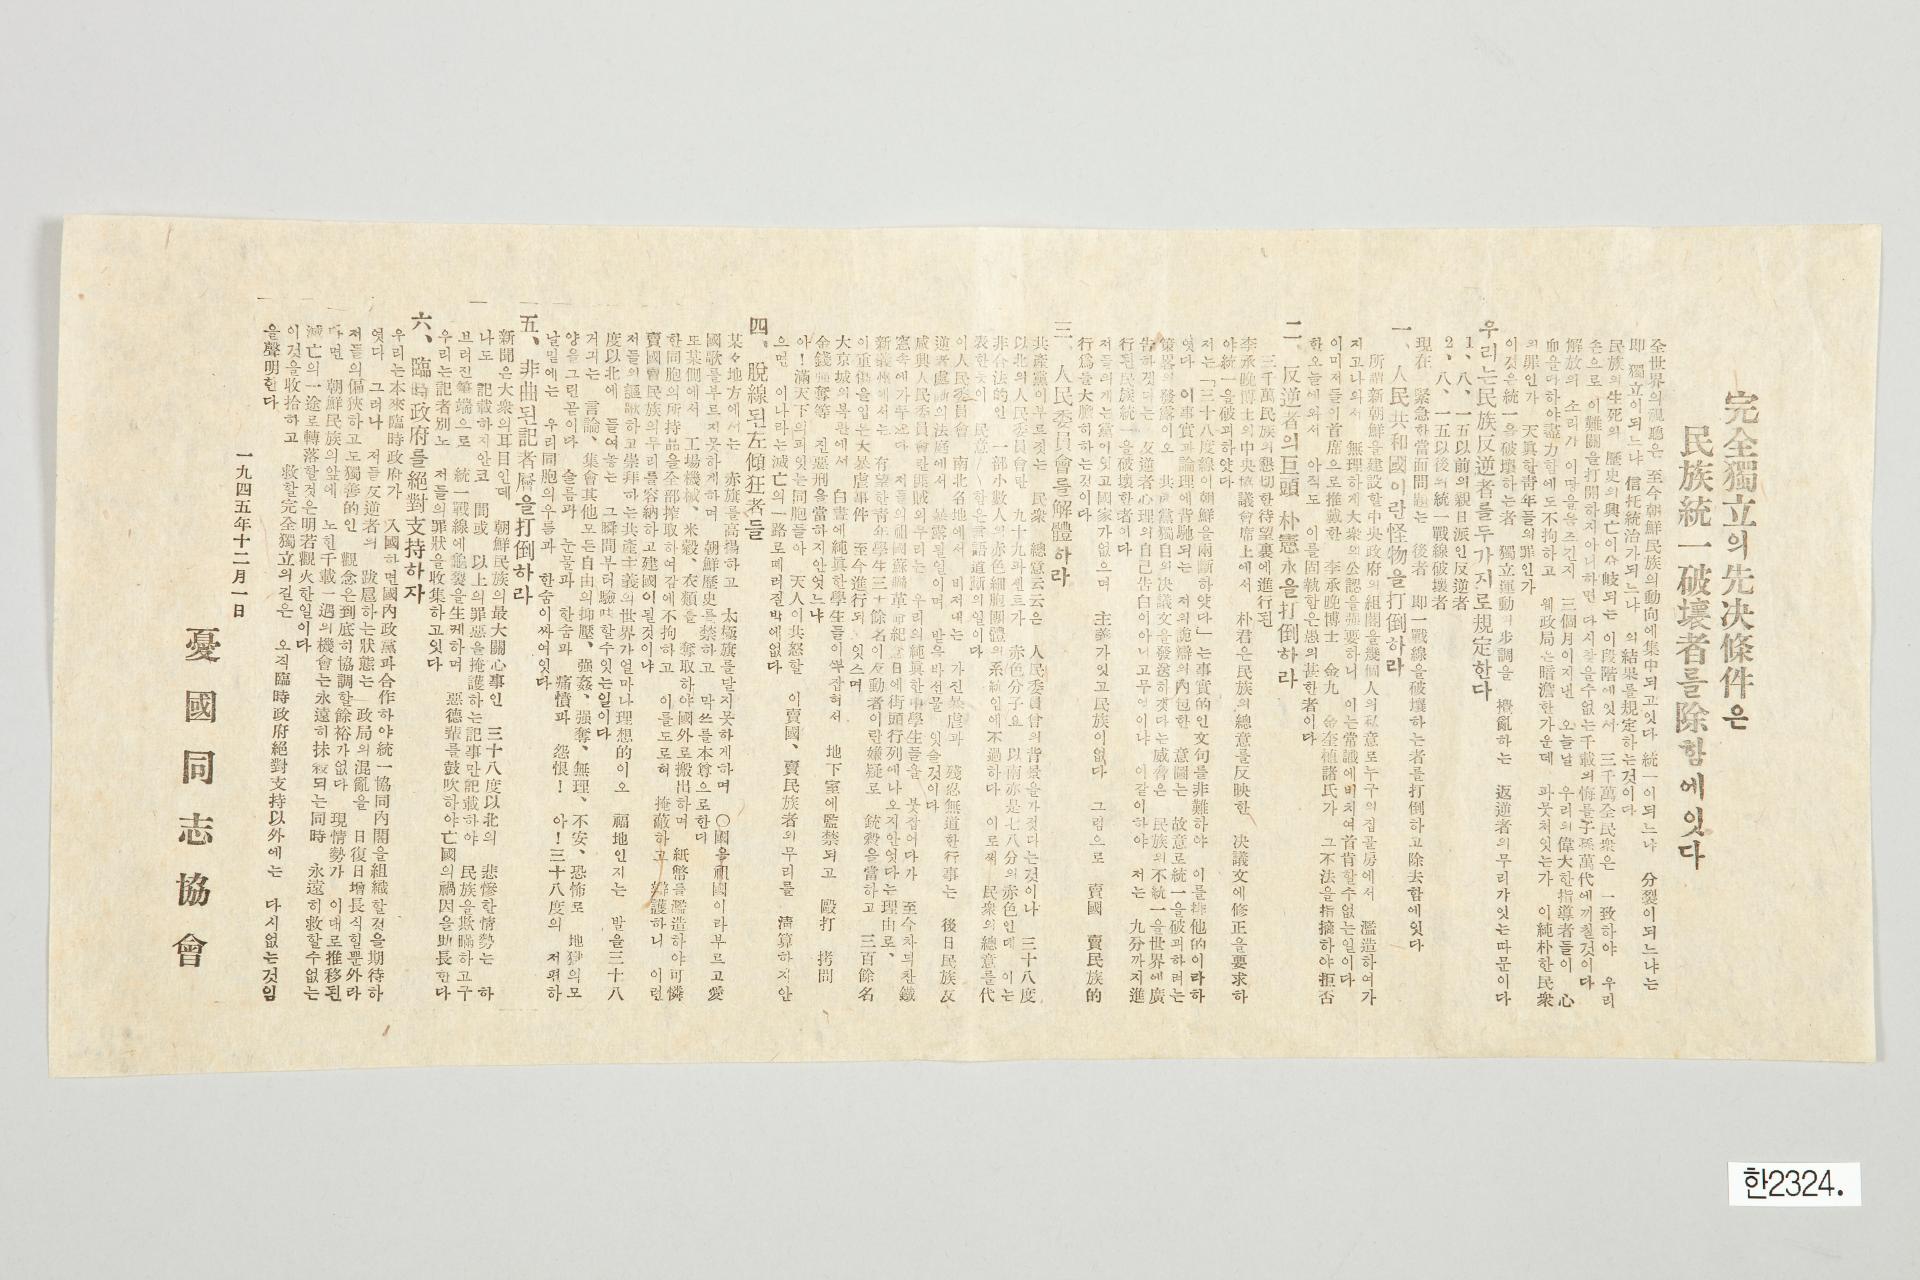 完全獨立의先決條件은
民族統一破壞者를除함에잇다
全世界의視聽은 至今朝鮮民族의動向에集中되고잇다 統一이되느냐 分裂이되느냐는
即 獨立이되느냐 信托統治가되느냐 의結果를規定하는것이다
民族의生死의 歷史의興亡이分岐되는 이段階에잇서 三千萬全民衆은 一致하야 우리
손으로 이難關을打開하지아니하면 다시찾을수없는千載의悔를子孫萬代에끼칠것이다
解放의 소리가 이땅을 三個月이지낸 오늘날 우리의偉大한指導者들이 心
血을다하야盡力함에도不拘하고 웨政局은暗澹한가운데 이純朴한民衆
의罪인가 天眞한靑年들의罪인가
이것은統一을破壞하는者 獨立運動의步調를 攪亂하는 返逆者의무리가잇는따문이다
우리는民族反逆者를두가지로規定한다
1、八、一五以前의親日派인反逆者
2、八、一五以後의統一戰線破壞者
現在 緊急한當面問題는 後者 即一戰線을破壞하는者를打倒하고除去함에잇다
一、人民共和國이란怪物을打倒하라
所謂新朝鮮을建設할中央政府의組閣을幾個人의私意로누구의집골房에서 濫造하여가
지고나와서 無理하게大衆의公認을强要하니 이는常識에비치여首肯할수없는일이다
이미저들이首席으로推戴한 李承晩博士 金九 金奎植諸氏가 그不法을指摘하야拒否
한오늘에와서 아직도 이를固執함은愚의甚한者이다
二、反逆者의巨頭 朴憲永을打倒하라
三千萬民族의懇切한待望裏에進行된
李承晩博士의中央協議會席上에서 朴君은民族의總意를反映한 決議文에修正을要求하
야統一을破괴하얏다
저는「三十八度線이朝鮮을兩斷하얏다」는事實的인文句를非難하야 이를排他的이라하
엿다 이事實과論理에背馳되는 저의詭辯의內包한 意圖는 故意로統一을破괴하려는
策畧의發露이오 共産黨獨自의決議文을發送하겟다는威脅은 民族의不統一을世界에廣
告하겟다는 反逆者心理의自己告白이아니고무엇이냐 이같이하야 저는 九分까지進
行된民族統一을破壞한者이다
저들의게는黨이잇고國家가없으며 主義가잇고民族이없다 그럼으로 賣國 賣民族的
行爲를大膽히하는것이다
三、人民委員會를解體하라
共產黨이부르짓는 民衆 總意云云은 人民委員會의背景을가젓다는것이나 三十八度
以北의人民委員會만 九十九파센트가 赤色分子요 以南亦是七八分의赤色인데 이는
非合法的인 一部小數人의赤色細胞團體의系統인에不過하다 이로써 民衆의總意를代
表한듯이 民意/\함은言語道斷의일이다
이人民委員會 南北名地에서 비저내는 가진暴虐과 殘忍無道한行事는 後日民族反
逆者處斷의法庭에서 暴露될일이며 발을박선물 잇슬것이다
咸興人民委員會란匪賊의무리는 우리의純眞한中學生들을 붓잡어다가 至今차듸찬鐵
窓속에가두엇다 저들의祖國蘇聯革命紀念日에街頭行列에나오지안엇다는理由로、
新義州에서는 有望한靑年學生三十餘名이反動者이란嫌疑로 銃殺을當하고 三百餘名
이重傷을입은大暴虐事件 至今進行되 잇스며
大京城의복판에서 白晝에純眞한學生들이부잡혀서 地下室에監禁되고 毆打 拷問
金錢强奪等 진惡刑을當하지안엇느냐
아!滿天下의피잇는同胞들아 天人이共怒할 이賣國、賣民族者의무리를 淸算하지안
으면 이나라는滅亡의一路로떼러질박에없다
四、脫線된左傾狂者들
某々地方에서는 赤旗를高揚하고 太極旗를달지못하게하며 〇國을祖國이라부르고愛
國歌를부르지못하게하며 朝鮮歷史를禁하고 막쓰를本尊으로한다
또某側에서 工場機械、米穀、衣類를 奪取하야國外로搬出하며 紙幣를濫造하야可憐
한同胞의所持品을全部搾取하여감에不拘하고 이를도로혀 掩蔽하고 辯護하니 이런
賣國賣民族의무리를容納하고建國이될것이냐
저들의謳歌하고崇拜하는共產主義의世界가얼마나理想的이오 福地인지는 발을三十八
度以北에 들여놓는 그瞬間부터驗味할수잇는일이다
거긔는 言論、集會其他모든自由의抑壓、强姦、强奪、無理、不安、恐怖로 地獄의모
양을그린곧이다 슬픔과 눈물과 한숨과 痛憤과 怨恨! 아!三十八度의 저편하
날밑에는 우리同胞의우름과 한숨이싸여잇다
五、非曲된記者層을打倒하라
新聞은大衆의耳目인데 朝鮮民族의最大關心事인 三十八度以北의 悲慘한情勢는 하
나도 記載하지안코 間或 以上의罪惡을掩護하는記事만記載하야 民族을欺瞞하고구
브러진筆端으로 統一戰線에龜裂을生케하며 惡德輩를鼓吹하야亡國의禍因을助長한다
우리는記者別노 저들의罪狀을收集하고잇다
六、臨時政府를絕對支持하자
우리는本來臨時政府가 入國하면國內政黨과合作하야統一協同內閣을組織할것을期待하
엿다 그러나 저들反逆者의 跋扈하는狀態는 政局의混亂을 日復日增長식힐뿐外라
저들의偏狹하고도獨善的인 觀念은到底히協調할餘裕가없다 現情勢가 이대로推移된
다면 朝鮮民族의앞에 노힌千載一遇의機會는永遠히抹殺되는同時 永遠히救할수없는
滅亡의一途로轉落할것은明若觀火한일이다
이것을收拾하고 救할完全獨立의길은 오직臨時政府絕對支持以外에는 다시없는것임
을聲明한다
一九四五年十二月一日
憂國同志協會
한2324.